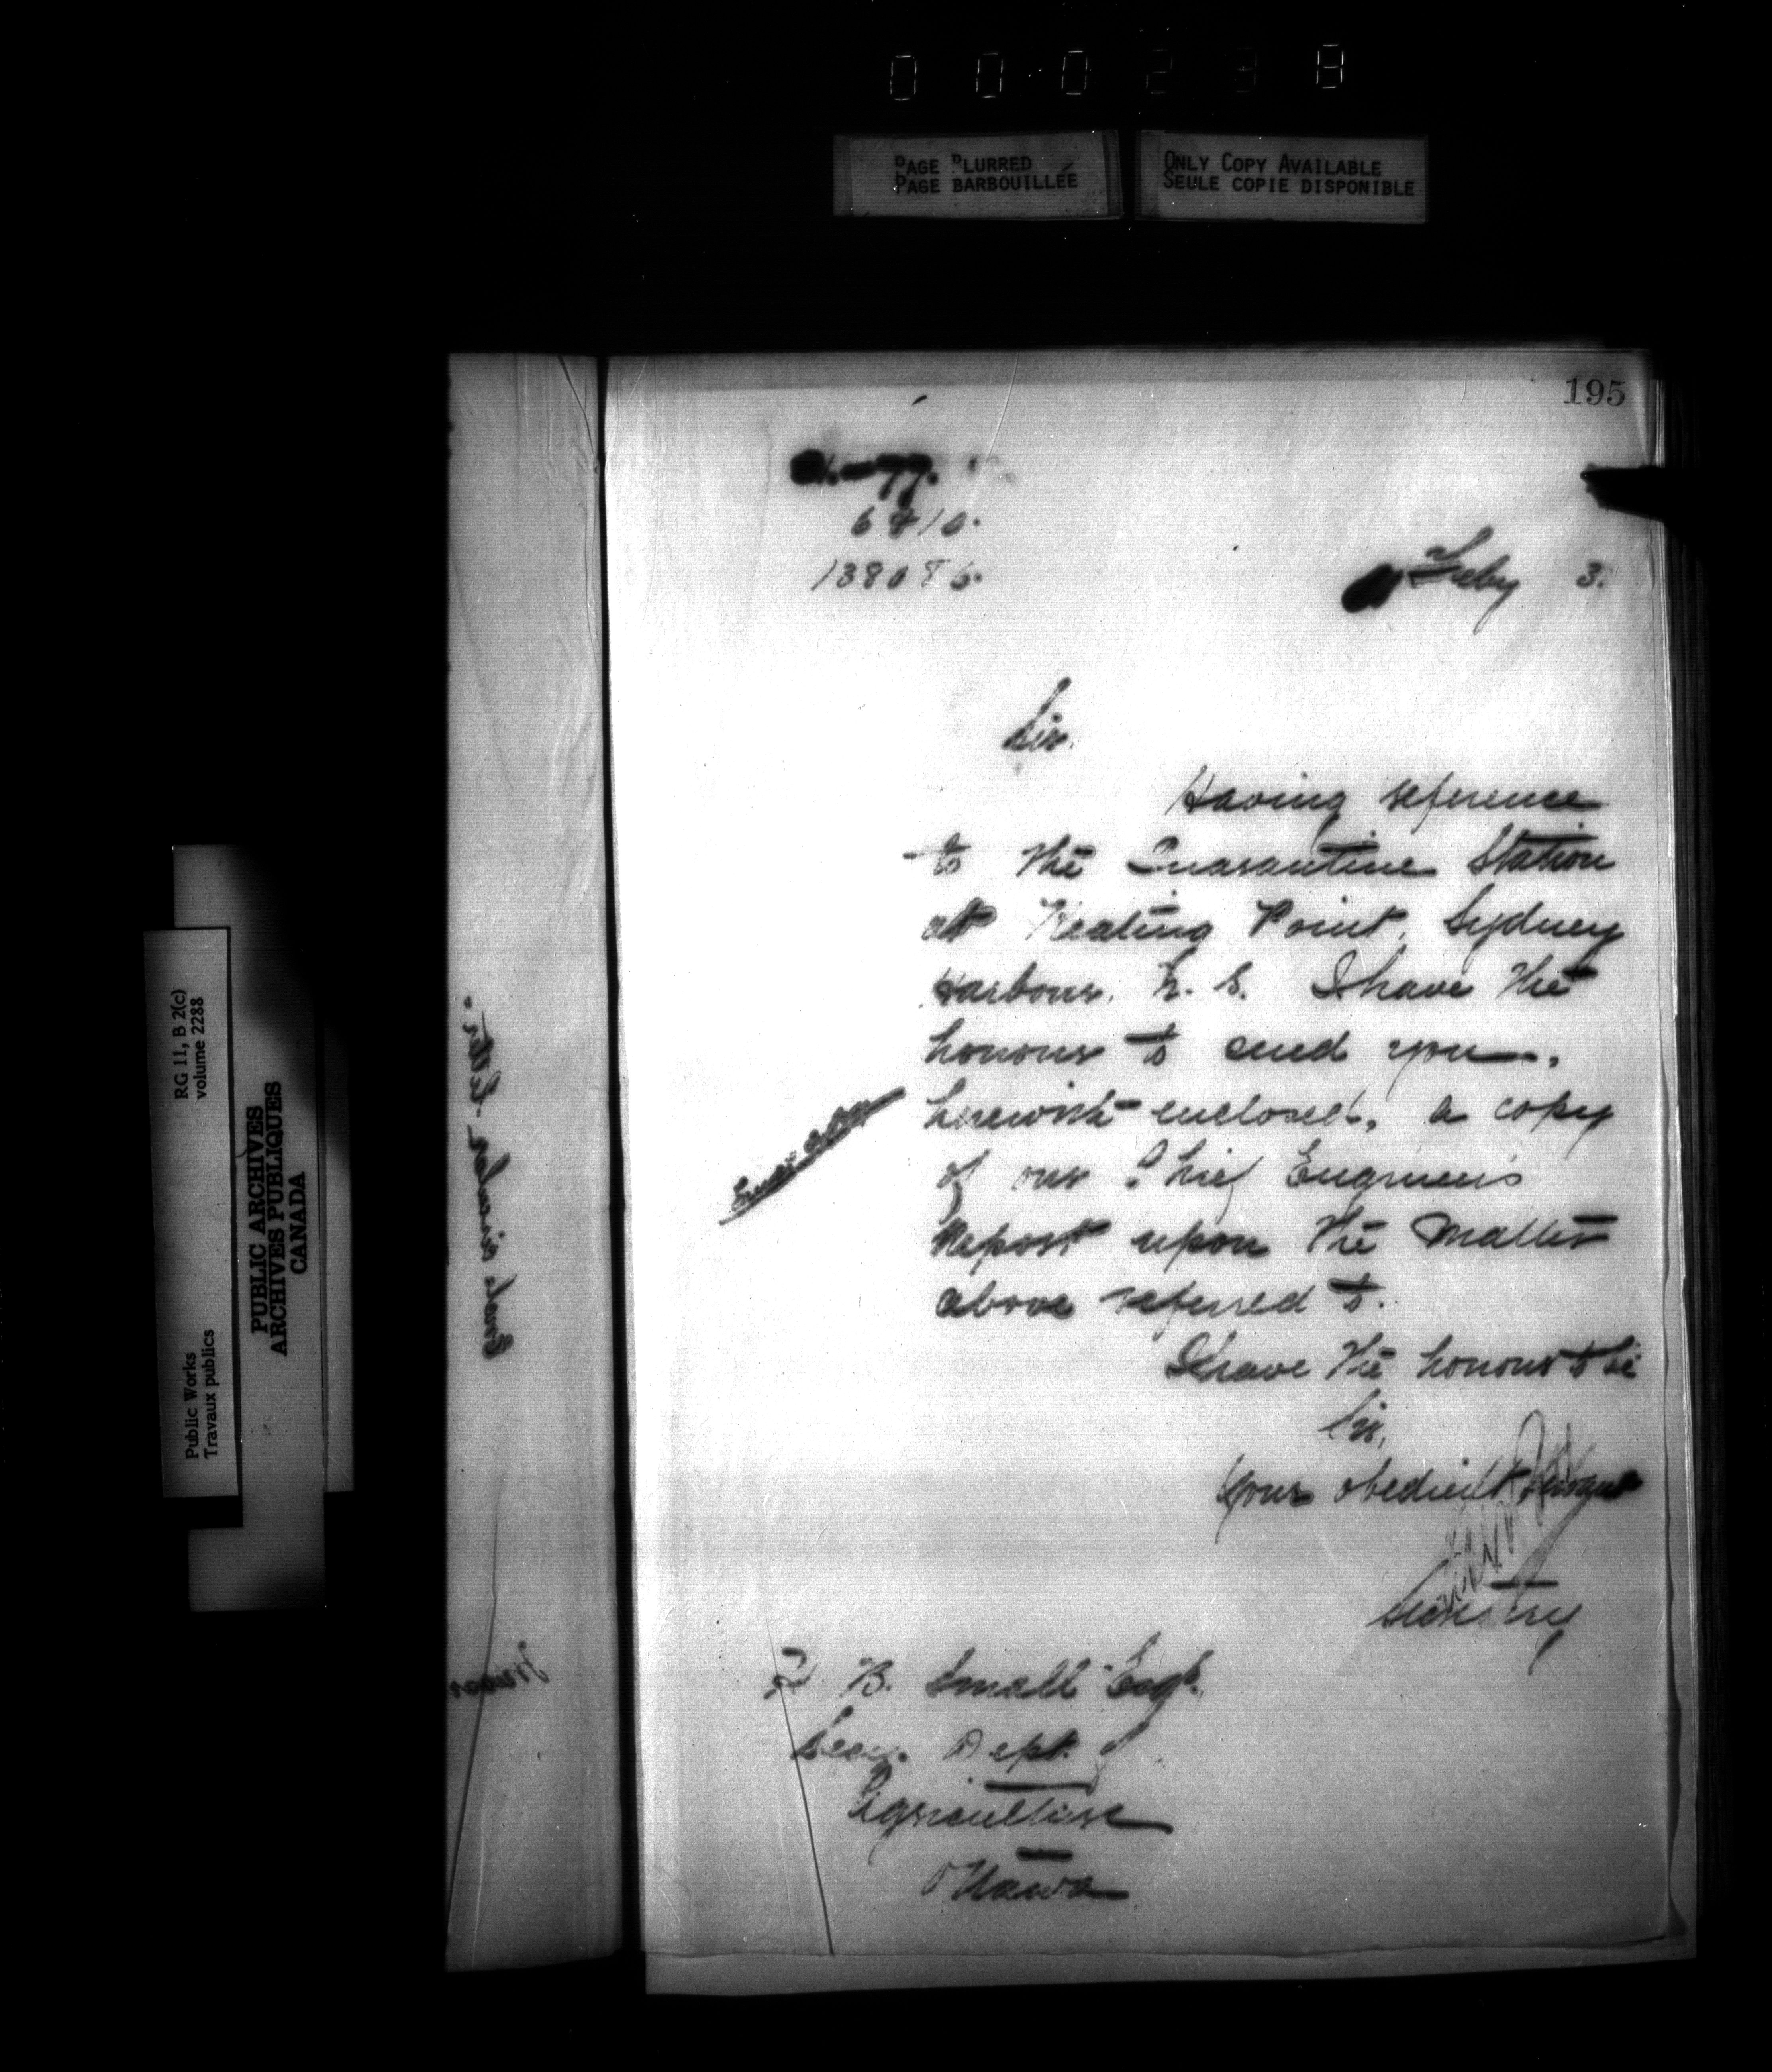 0 0 0 2 3 8
PAGE BLURRED
PAGE BARBOUILLÉE
ONLY COPY AVAILABLE
SEULE COPIE DISPONIBLE
195
6810.
138086.
Feby 3.
Sir.
Having reference
to the Quarantine Station
at Keating Point, Sydney
Harbour, N. S. I have the
honour to send you,
herewith enclosed, a copy
of our Chief Engineer's
Report upon the matter
above referred to.
I have the honour to be
Sir,
Your obedient servant
Secretary
B. Small Esq.
Secy. Dept. of
Agriculture
Ottawa
RG 11, B 2(c)
volume 2288
Public Works
Travaux publics
PUBLIC ARCHIVES
ARCHIVES PUBLIQUES
CANADA